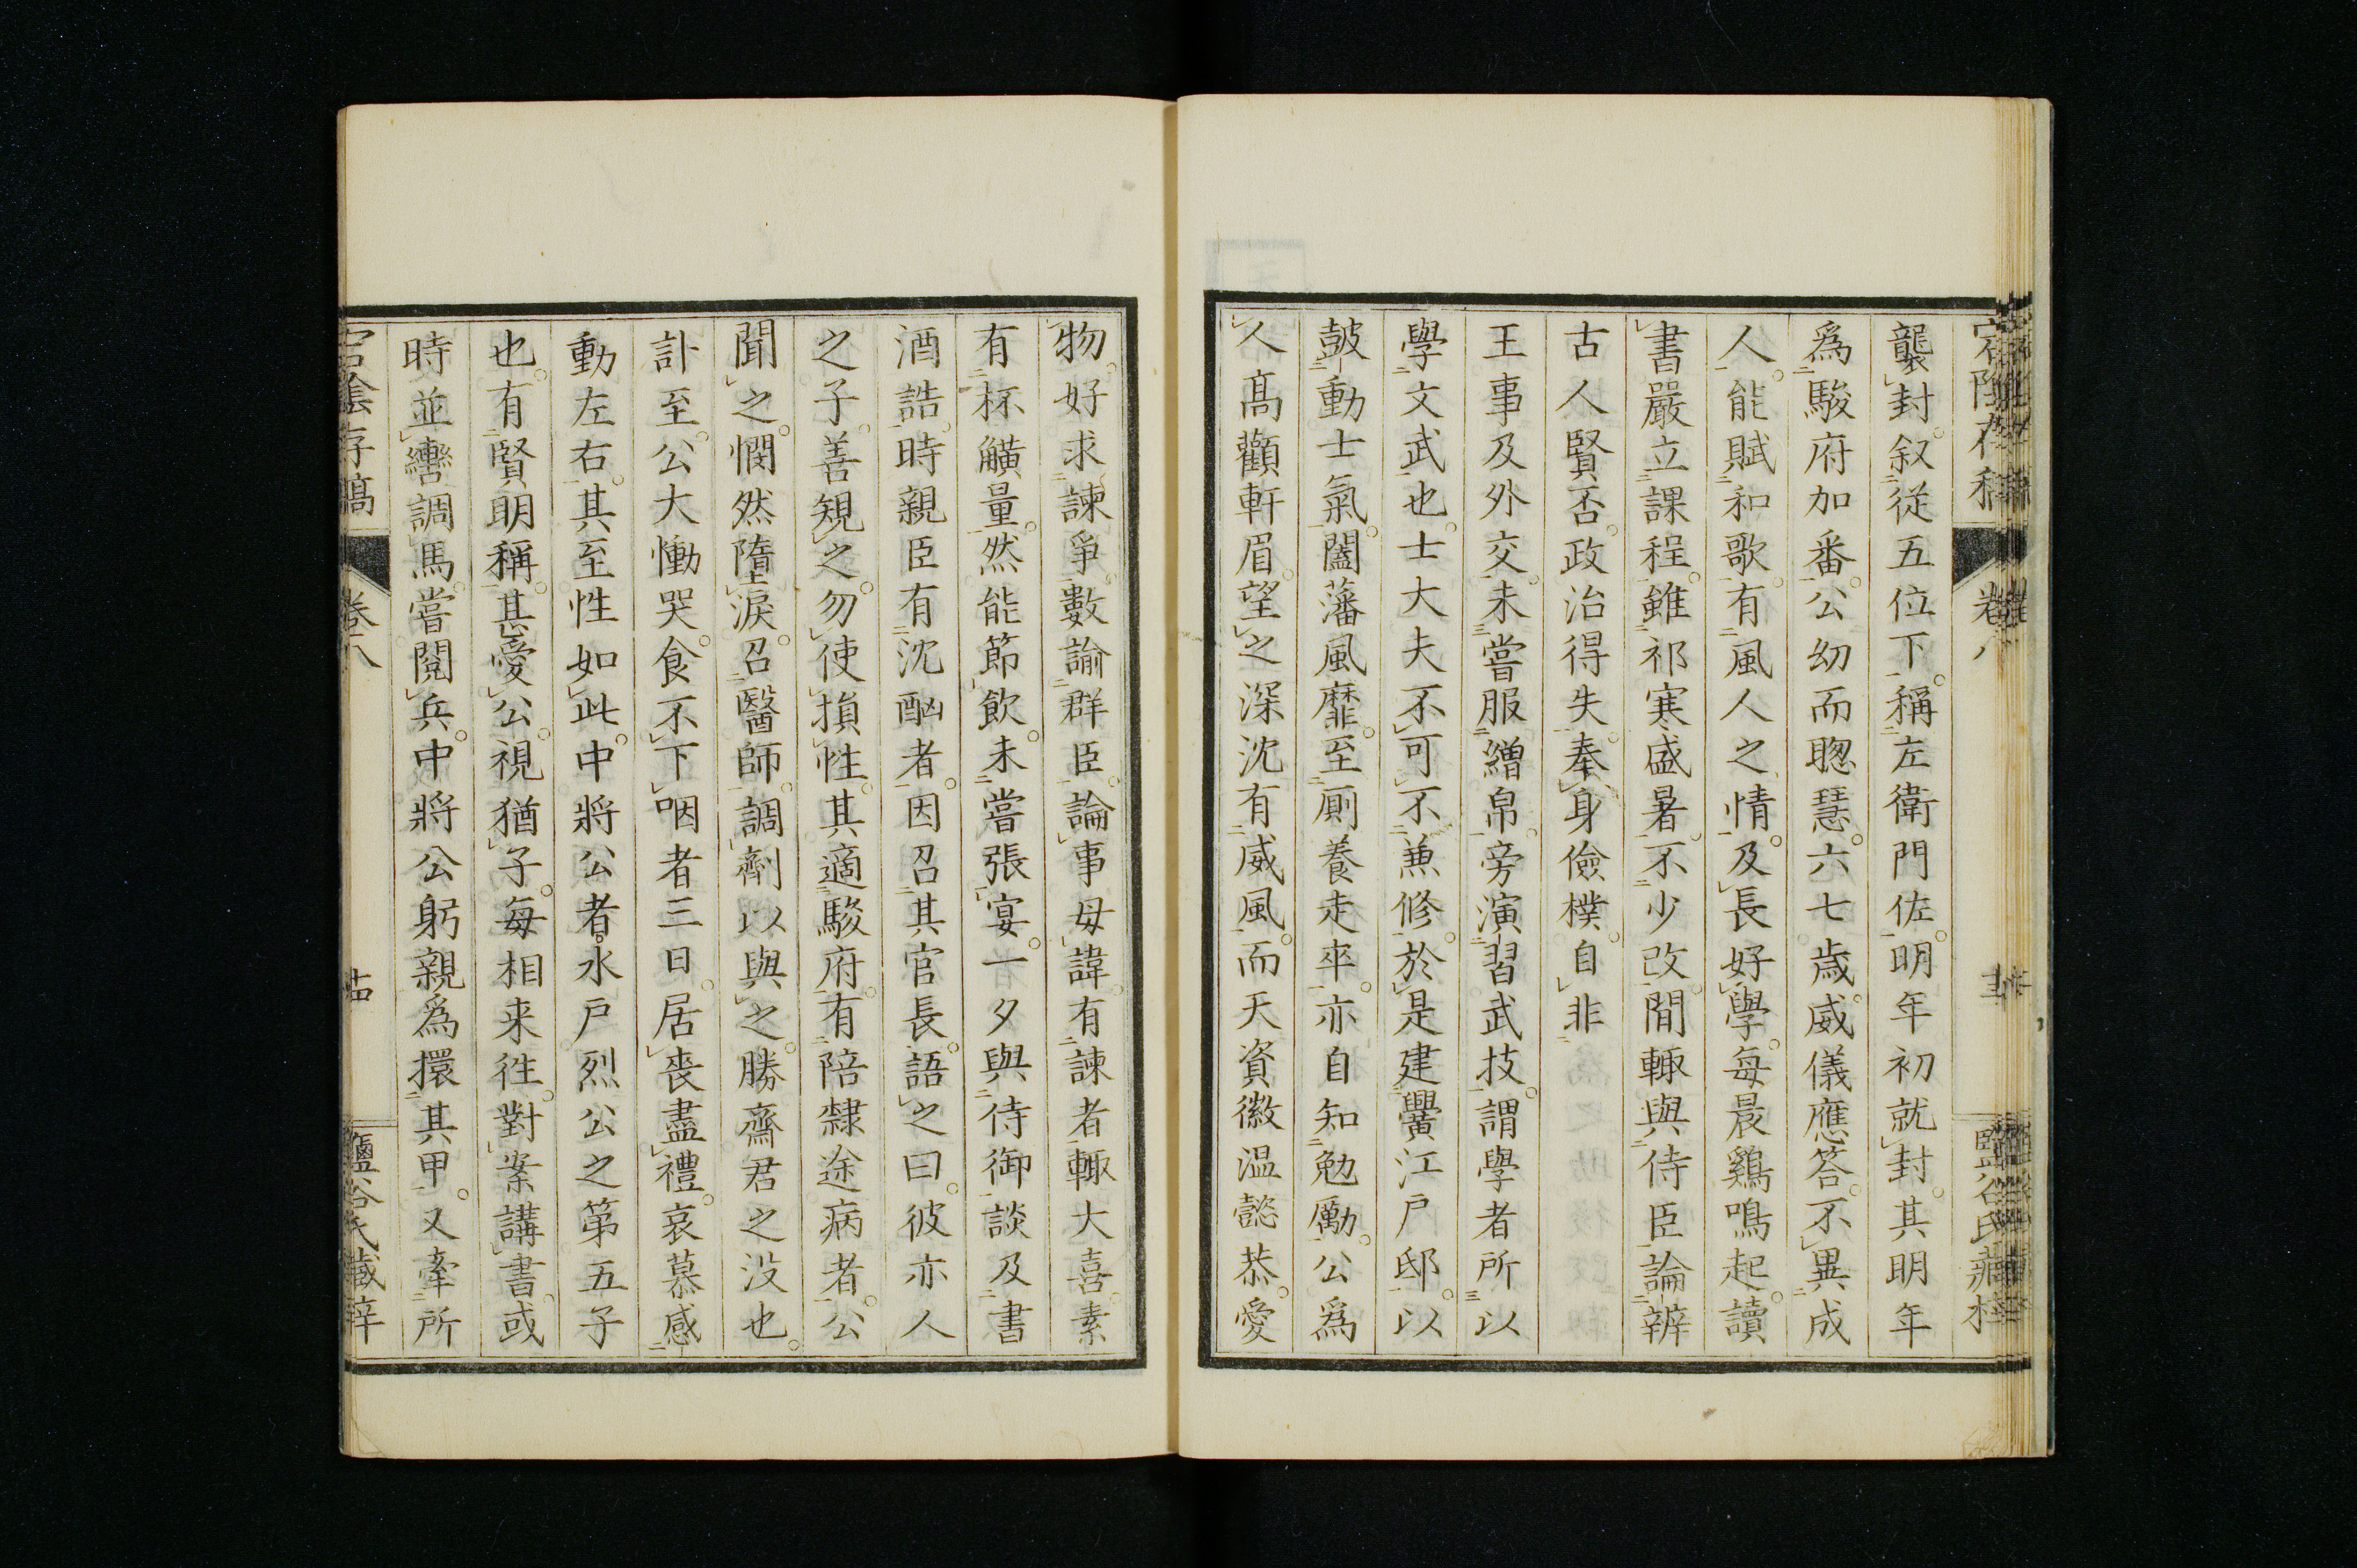 襲封。叙從五位下。稱左衛門佐。明年初就封。其明年
爲駿府加番。公幼而聰慧。六七歳。威儀應答。不異成
人。能賦和歌。有風人之情。及長好學。毎晨鷄鳴起。讀
書嚴立課程。雖祁寒盛暑。不少改。間輙與侍臣論辨
古人賢否。政治得失。奉身儉樸。自非
王事及外交。未嘗服繒帛。旁演習武技。謂學者所以
學文武也。士大夫不可不兼修。於是建黌江戸邸。以
鼓動士氣。闔藩風靡。至厠養走卒。亦自知勉勵。公爲
人高顴軒眉。望之深沈有威風。而天資徽温懿恭。愛
物。好求諫爭。數諭群臣。論事毋諱。有諫者輙大喜。素
有杯觵量。然能節飲。未嘗張宴。一夕與侍御談及書
酒誥。時親臣有沈酗者。因召其官長。語之曰。彼亦人
之子。善規之。勿使損性。其適駿府。有陪隸途病者。公
聞之。憫然隋淚。召醫師。調劑以與之。勝齋君之没也。
訃至。公大慟哭。食不下咽者三日。居喪盡禮。哀慕感
動左右。其至性如此。中將公者。水戸烈公之第五子
也。有賢明稱。甚愛公。視猶子。毎相来徃。對案講書。或
時並轡調馬。嘗閲兵。中將公躬親爲擐其甲。又牽所
宕陰存稿 卷八 十四 鹽谷氏藏梓